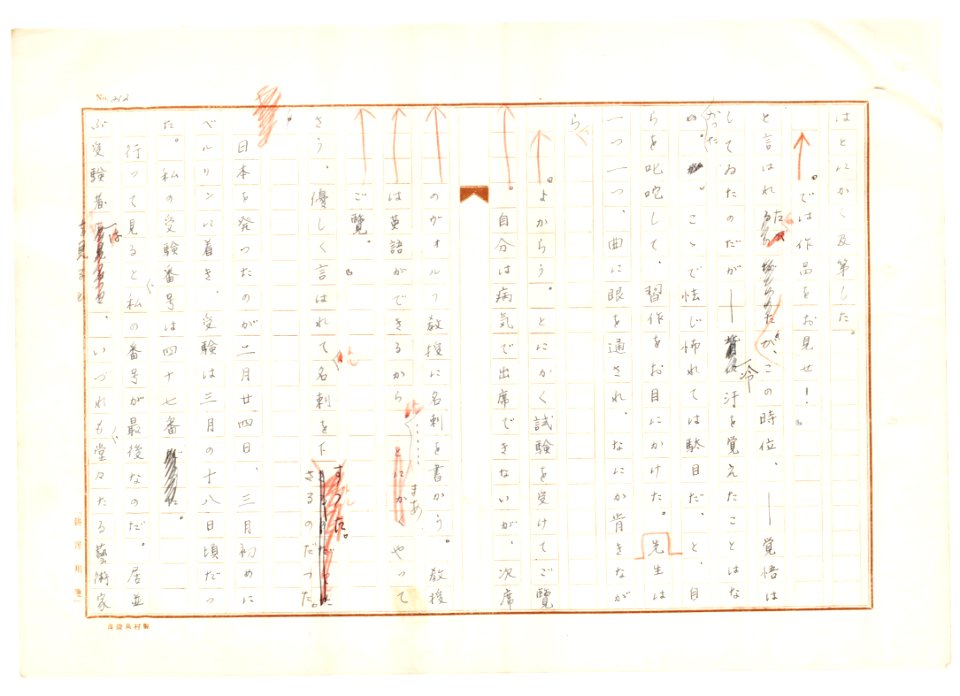 No. 212
はとにかく及第した。
「では作品をお見せ!」
と言はれた、この時位、――覚悟は
してゐたのだが――冷汗を覚えたことはな
かつた。こゝで怯じ怖れては駄目だ、と、自
らを叱咤して、習作をお目にかけた。先生は
一つ一つ、曲に眼を通され、なにか肯きなが
ら、
「よからう。とにかく試験を受けてご覧
。自分は病気で出席できないが、次席
のヴォルフ教授に名刺を書かう。教授
は英語ができるから、まあやつて
ご覧。」
さう、優しく言はれて名刺を下すつた。
日本を発つたのが二月廿四日、三月初めに
ベルリンに着き、受験は三月の十八日頃だつ
た。私の受験番号は四十七番。
行つて見ると、私の番号が最後なのだ。居並
ぶ受験者は、いづれも堂々たる藝術家